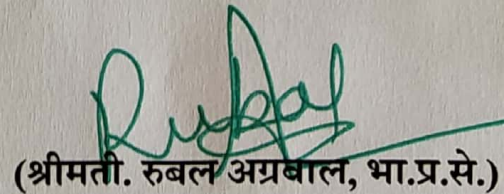 (श्रीमती. रुबल अग्रवाल, भा.प्र.से.)